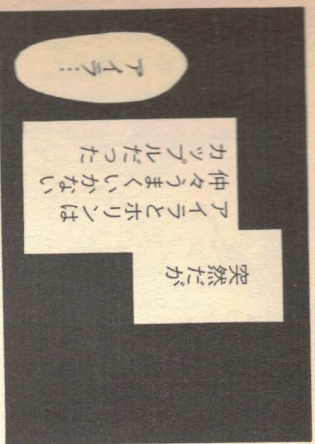 突然だが
アイラとホリンは
仲々うまくいかない
カップルだった
アイラ…